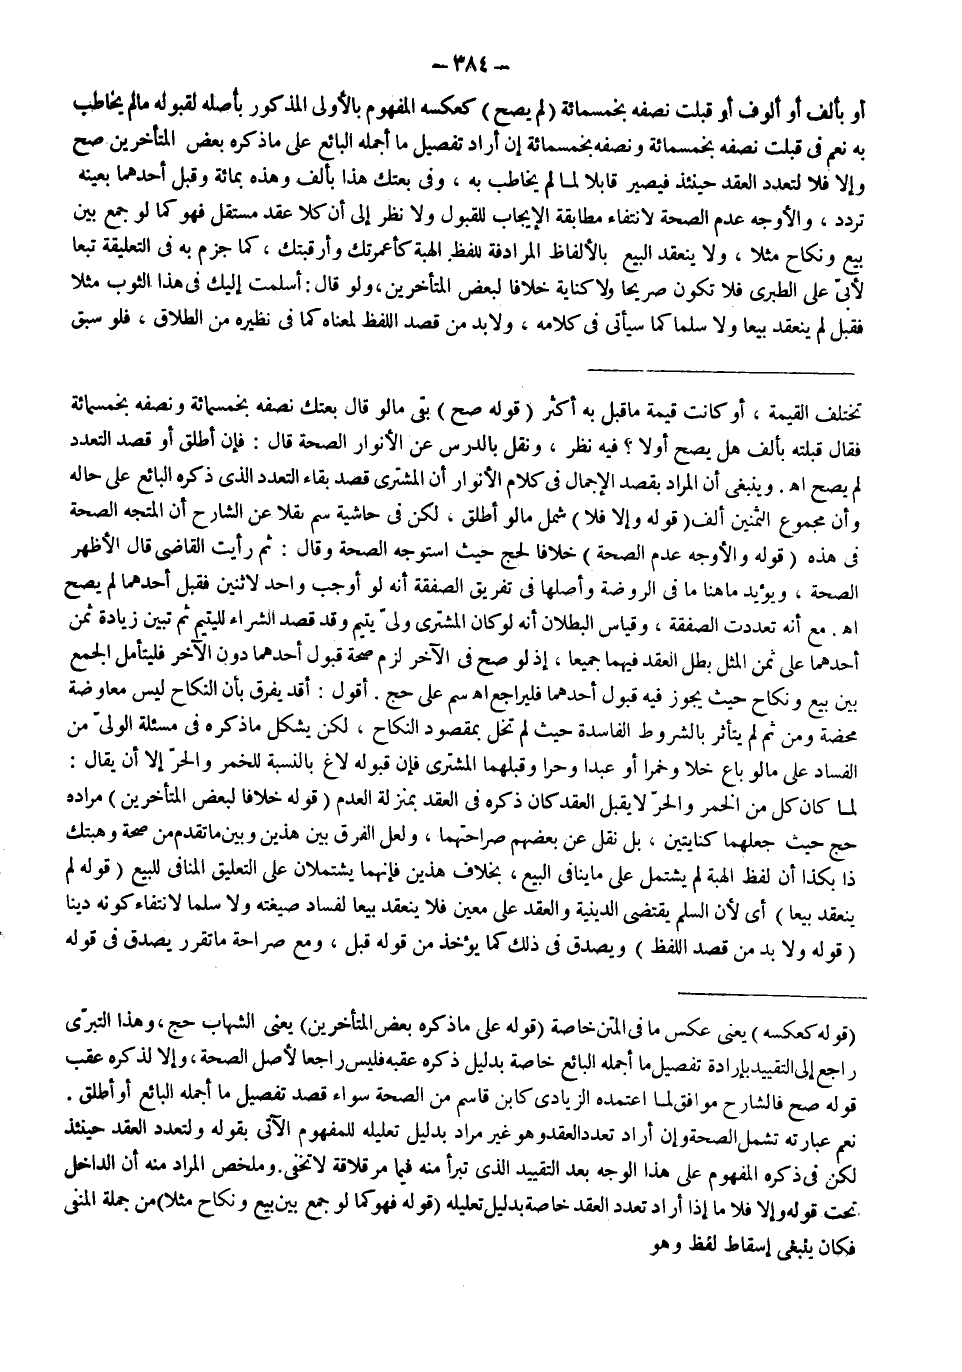 - ٣٨٤ -
أو بألف أو ألوف أو قبلت نصفه بخمسمائة ( لم يصح ) كعكسه المفهوم بالأولى المذكور بأصله لقبوله مالم يخاطب
به نعم فى قبلت نصفه بخمسمائة ونصفه بخمسمائة إن أراد تفصيل ما أجمله البائع على ماذكره بعض المتأخرين صح
وإلا فلا لتعدد العقد حينئذ فيصير قابلا لما لم يخاطب به ، وفى بعتك هذا بألف وهذه بمائة وقبل أحدهما بعينه
تردد ، والأوجه عدم الصحة لانتفاء مطابقة الإيجاب للقبول ولا نظر إلى أن كلا عقد مستقل فهو كما لو جمع بين
بيع ونكاح مثلا ، ولا ينعقد البيع بالألفاظ المرادفة للفظ الهبة كأعمرتك وأرقبتك ، كما جزم به فى التعليقة تبعا
لأبىّ على الطبرى فلا تكون صريحا ولا كناية خلافا لبعض المتأخرين ، ولو قال : أسلمت إليك فى هذا الثوب مثلا
فقبل لم ينعقد بيعا ولا سلما كما سيأتى فى كلامه ، ولابد من قصد اللفظ لمعناه كما فى نظيره من الطلاق ، فلو سبق
تختلف القيمة ، أو كانت قيمة ماقبل به أكثر ( قوله صح ) بقى مالو قال بعتك نصفه بخمسمائة ونصفه بخمسمائة
فقال قبلته بألف هل يصح أولا ؟ فيه نظر ، ونقل بالدرس عن الأنوار الصحة قال : فإن أطلق أو قصد التعدد
لم يصح اه . وينبغى أن المراد بقصد الإجمال فى كلام الأنوار أن المشترى قصد بقاء التعدد الذى ذكره البائع على حاله
وأن مجموع الثمنين ألف ( قوله وإلا فلا ) شمل مالو أطلق ، لكن فى حاشية سم نقلا عن الشارح أن المتجه الصحة
فى هذه ( قوله والأوجه عدم الصحة ) خلافا لحج حيث استوجه الصحة وقال : ثم رأيت القاضى قال الأظهر
الصحة ، ويؤيد ماهنا ما فى الروضة وأصلها فى تفريق الصفقة أنه لو أوجب واحد لاثنين فقبل أحدهما لم يصح
اه . مع أنه تعددت الصفقة ، وقياس البطلان أنه لو كان المشترى ولىّ يتيم وقد قصد الشراء لليتيم ثم تبين زيادة ثمن
أحدهما على ثمن المثل بطل العقد فيهما جميعا ، إذ لو صح فى الآخر لزم صحة قبول أحدهما دون الآخر فليتأمل الجمع
بين بيع ونكاح حيث يجوز فيه قبول أحدهما فليراجع اه سم على حج . أقول : أقد يفرق بأن النكاح ليس معاوضة
محضة ومن ثم لم يتأثر بالشروط الفاسدة حيث لم تخل بمقصود النكاح ، لكن يشكل ماذكره فى مسئلة الولىّ من
الفساد على مالو باع خلا وخمرا أو عبدا وحرا وقبلهما المشترى فإن قبوله لاغ بالنسبة للخمر والحرّ إلا أن يقال :
لما كان كل من الخمر والحرّ لا يقبل العقد كان ذكره فى العقد بمنزلة العدم ( قوله خلافا لبعض المتأخرين ) مراده
حج حيث جعلهما كنايتين ، بل نقل عن بعضهم صراحتهما ، ولعل الفرق بين هذين وبين ماتقدم من صحة وهبتك
ذا بكذا أن لفظ الهبة لم يشتمل على ماينافى البيع ، بخلاف هذين فإنهما يشتملان على التعليق المنافى للبيع ( قوله لم
ينعقد بيعا ) أى لأن السلم يقتضى الدينية والعقد على معين فلا ينعقد بيعا لفساد صيغته ولا سلما لانتفاء كونه دينا
( قوله ولا بد من قصد اللفظ ) ويصدق فى ذلك كما يؤخذ من قوله قبل ، ومع صراحة ماتقرر يصدق فى قوله
(قوله كعكسه ) يعنى عكس ما فى المتن خاصة (قوله على ماذكره بعض المتأخرين) يعنى الشهاب حج ، وهذا التبرّى
راجع إلى التقييد بإرادة تفصيل ما أجمله البائع خاصة بدليل ذكره عقبه فليس راجعا لأصل الصحة ، وإلا لذكره عقب
قوله صح فالشارح موافق لما اعتمده الزيادى كابن قاسم من الصحة سواء قصد تفصيل ما أجمله البائع أو أطلق .
نعم عبارته تشمل الصحة وإن أراد تعدد العقد وهو غير مراد بدليل تعليله للمفهوم الآتى بقوله ولتعدد العقد حينئذ
لكن فى ذكره المفهوم على هذا الوجه بعد التقييد الذى تبرأ منه فيما مر قلاقة لا تخفى . وملخص المراد منه أن الداخل
تحت قوله وإلا فلا ما إذا أراد تعدد العقد خاصة بدليل تعليله (قوله فهو كما لو جمع بين بيع ونكاح مثلا) من جملة المنفى
فكان ينبغى إسقاط لفظ وهو